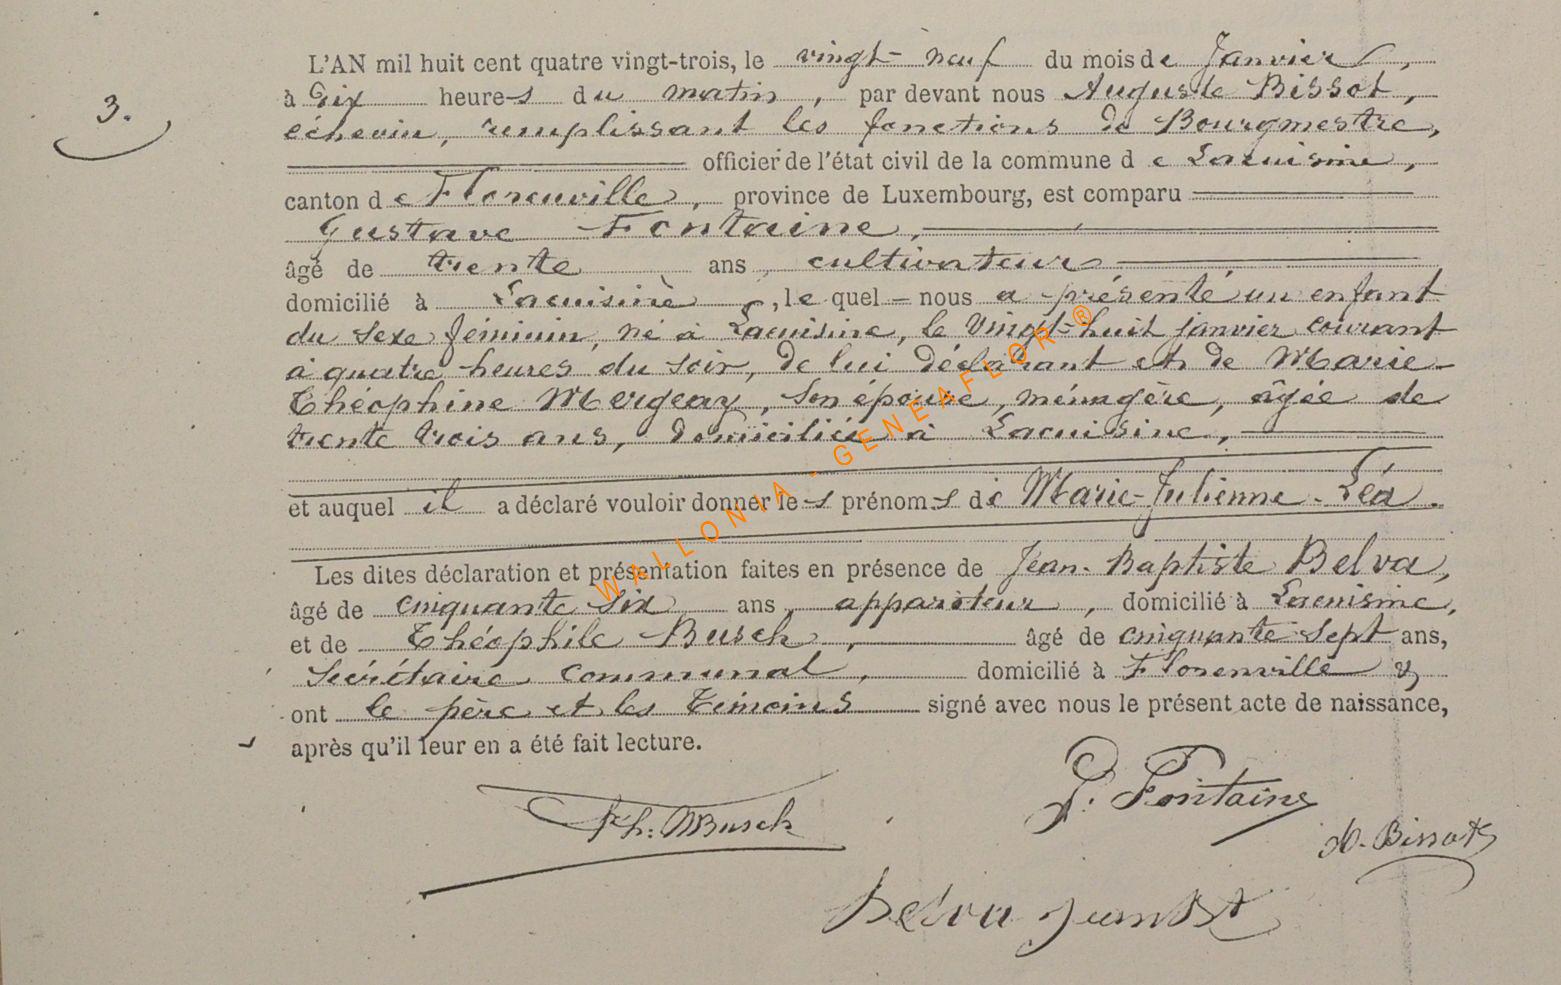 3.
L'AN mil huit cent quatre vingt-trois, le vingt-neuf du mois de Janvier,
à Dix heures du matin, par devant nous Auguste Bissot,
échevin, remplissant les fonctions de Bourgmestre,
officier de l'état civil de la commune de Lacuisine,
canton de Florenville, province de Luxembourg, est comparu
Gustave Fontaine,
âgé de trente ans, cultivateur
domicilié à Lacuisine, le quel - nous a présenté un enfant
du sexe féminin, né à Lacuisine, le vingt-huit janvier courant
à quatre heures du soir, de lui déclarant et de Marie-
Théophine Mergeay, son épouse, ménagère, âgée de
trente trois ans, domiciliée à Lacuisine,
et auquel il a déclaré vouloir donner les prénoms de Marie-Julienne-Léa.
Les dites déclaration et présentation faites en présence de Jean-Baptiste Belva,
âgé de cinquante six ans, appariteur, domicilié à Lacuisine,
et de Théophile Busch, âgé de cinquante-sept ans,
Secrétaire communal, domicilié à Florenville &
ont le père et les témoins signé avec nous le présent acte de naissance,
après qu'il leur en a été fait lecture.
G. Fontaine
Th: Busch
A. Bissot
Belva Jean Bt
WALLONIA - GENEAFLOR ®